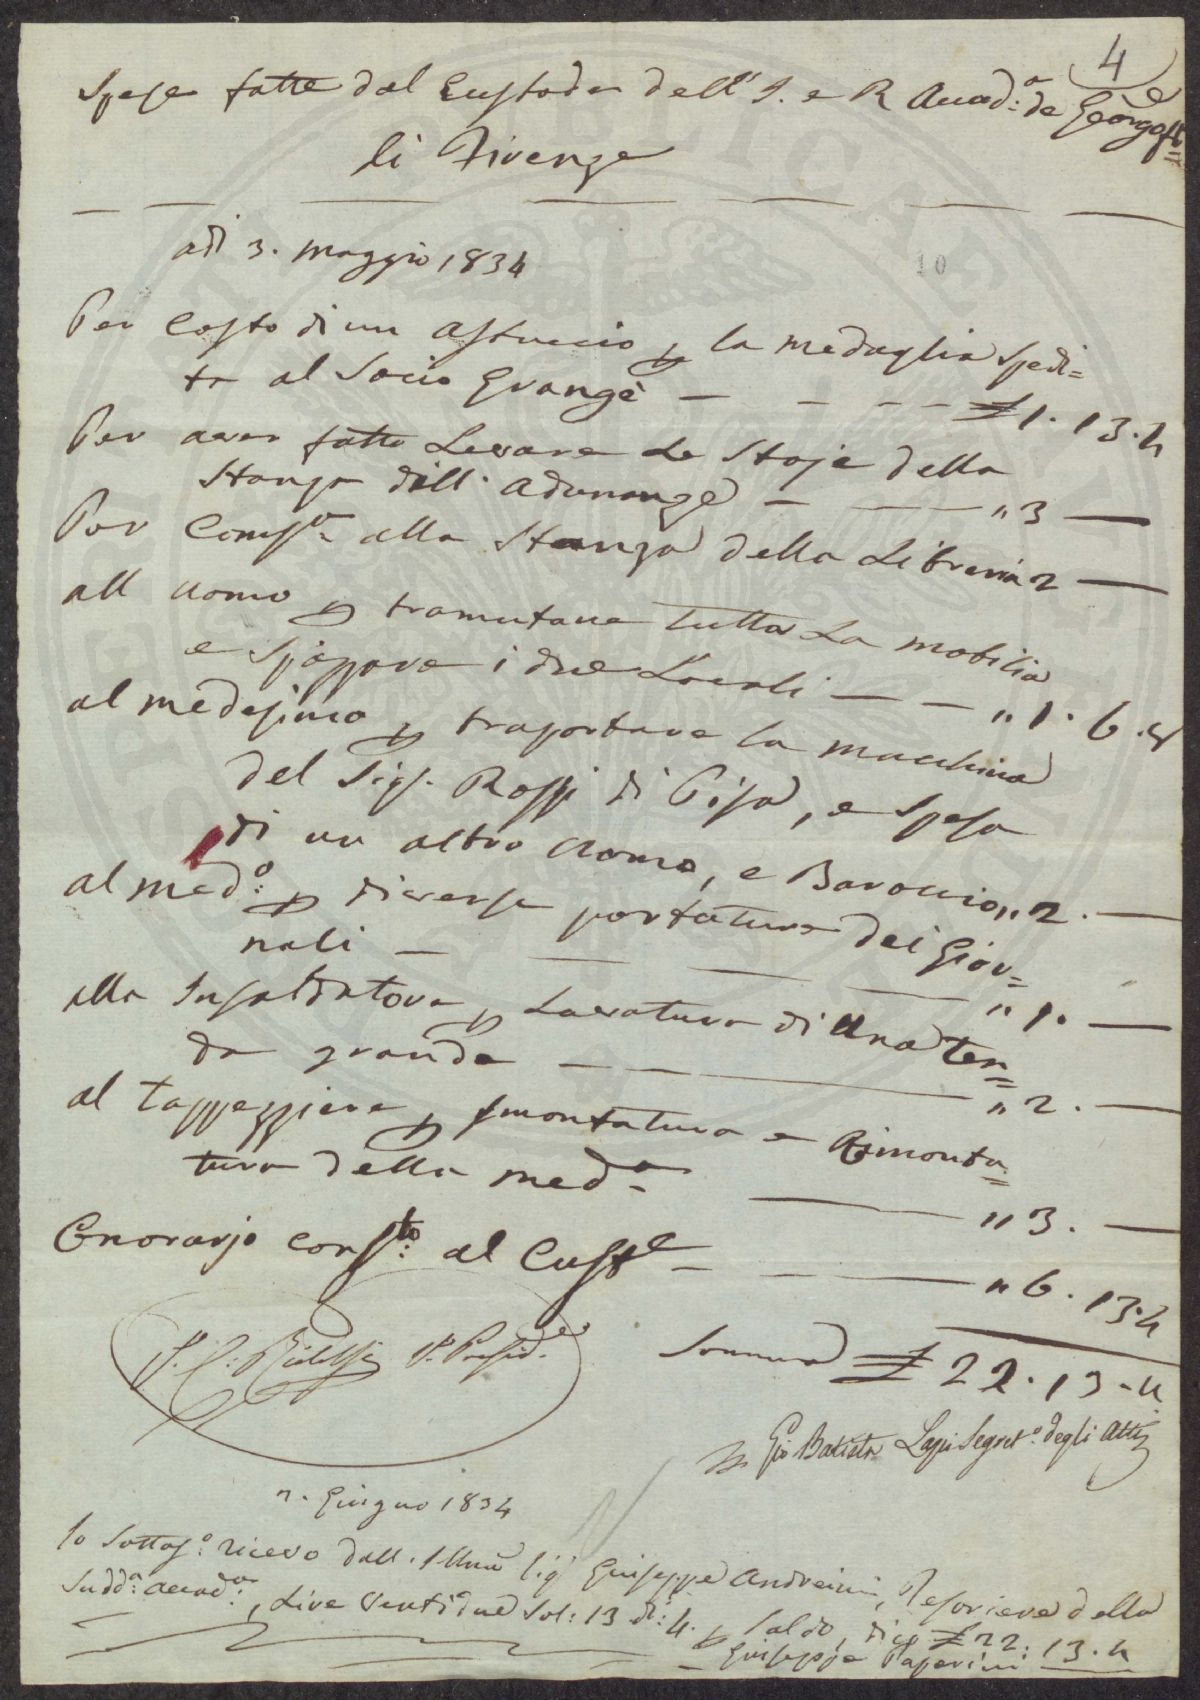 4
Spese fatte dal Custode dell' I. e R. Accad:a de Georgofi=
li di Firenze
adì 3. maggio 1834
10
Per Costo di un astuccio p la medaglia spedi=
ta al Socio Grangè — £ 1. 13. 4
Per aver fatto Levare Le Stoje della
Stanza dell' adunanze — " 3 —
Per Comse. alla Stanza della Libreria 2 —
all uomo p tramutare tutta La mobilia
e spazzare i due Locali — " 1. 6. 8
al medesimo p trasportare la macchina
del Sigr. Rossi di Pisa, e spesa
di un altro uomo, e Baroccio " 2. —
al med:o p diverse portature dei Gior=
nali — " 1. —
alla Insaldatora p Lavatura di una ten=
da grande — " 2. —
al tappezziere p smontatura e Rimonta=
tura della meda. — " 3. —
Onorario consto: al Custe. — " 6. 13. 4
Somma £ 22. 13. 4
P. Preside
Gio Batista Lapi Segreto. degli Atti
2. Giugno 1834
Io Sottos:o ricevo dall. Illmo Sigr Giuseppe Andreini, Tesoriere della
Sudd:a accad:a, Lire Ventidue Sol: 13 di: 4. p Saldo, dico £ 22. 13. 4
Giuseppe Paperini